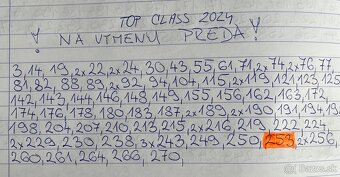 TOP CLASS 2024
! NA VÝMENU PREDÁ !
3, 14, 19, 2x22, 2x24, 30, 43, 55, 61, 71, 2x74, 2x76, 77
81, 82, 88, 89, 2x92, 94, 104, 115, 2x119, 121, 123, 125
142, 143, 144, 146, 148, 149, 155, 156, 162, 163, 172
174, 176, 178, 180, 183, 187, 2x189, 2x190, 191, 194, 194
198, 204, 207, 210, 213, 215, 2x216, 219, 222, 224,
2x229, 230, 238, 3x243, 249, 250, 253, 2x256,
260, 261, 264, 266, 270,